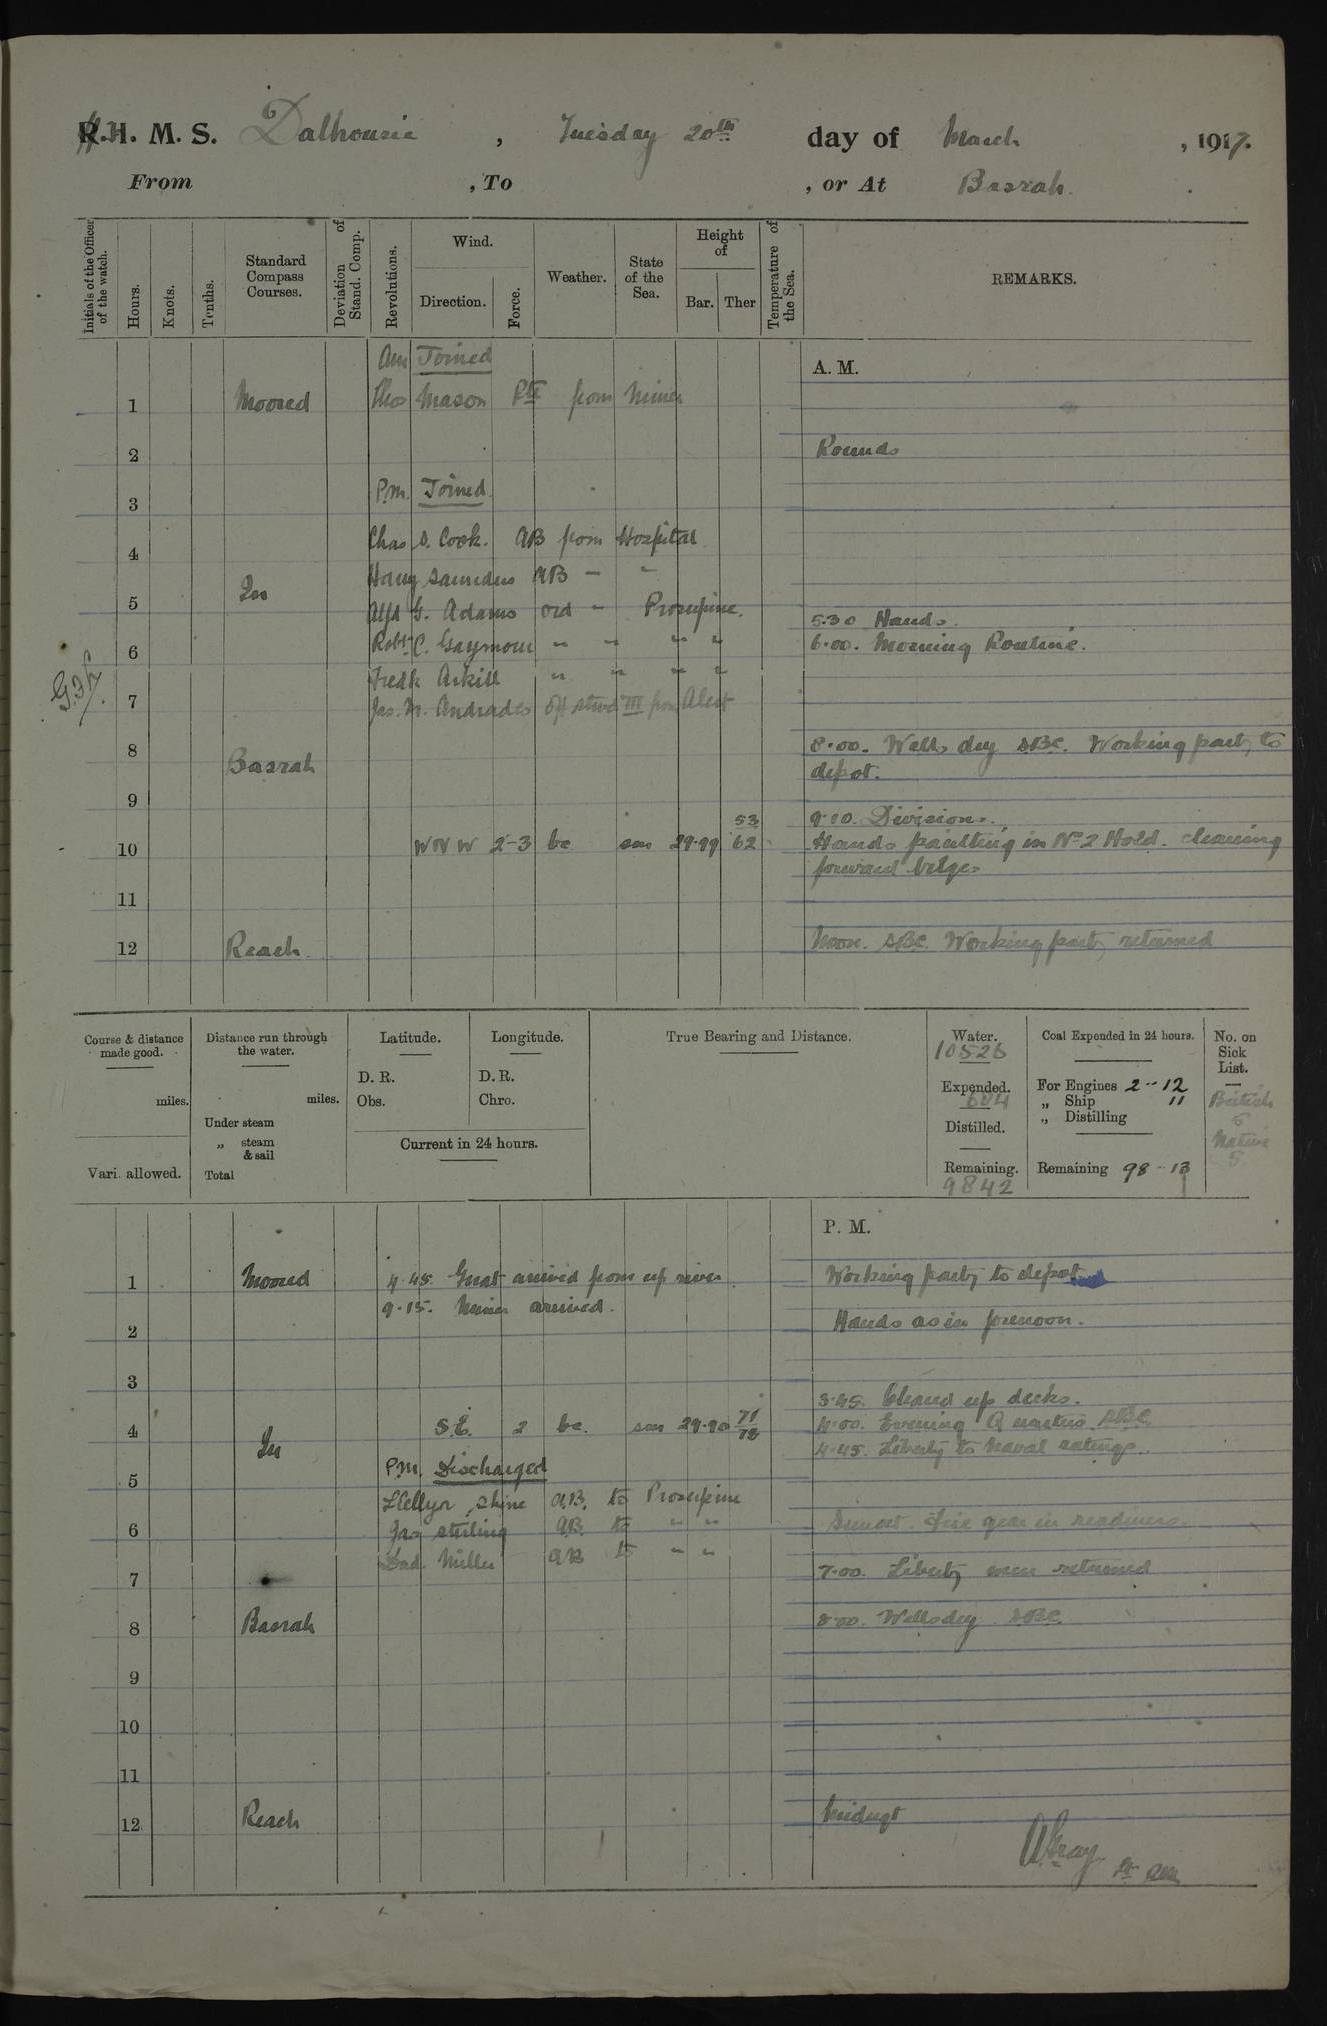 H. M. S. Dalhousie, Tuesday 20th day of March, 1917.
From , To , or At Basrah.
Initials of the Officer of the watch.
Hours.
Knots.
Tenths.
Standard Compass Courses.
Deviation of Stand. Comp.
Revolutions.
Wind.
Direction.
Force.
Weather.
State of the Sea.
Height of
Bar.
Ther
Temperature of the Sea.
REMARKS.
A. M.
am Joined
1 Moored Thos Mason Pte from Miner
2 Rounds
3 P.m. Joined.
4 Chas S. Cook. AB from Hospital
Harry Saunders AB " "
In
5 Alfd G. Adams ord " Proserpine.
5.30 Hands.
6 Robt C. " " " "
6.00. Morning Routine.
Fredk Arkill " " " "
7 Jas. M. Andrades Off stwd III from Alert
8 8.00. Wells dry SBC. Working party to
Basrah depot.
9
53 9.10. Divisions.
10 WNW 2-3 bc sm 29.99 62 Hands painting in No 2 Hold. cleaning
forward bilges
11
12 Reach. Noon. SBC. Working party returned
Course & distance made good.
miles.
Vari. allowed.
Distance run through the water.
miles.
Under steam
„ steam & sail
Total
Latitude.
D. R.
Obs.
Longitude.
D. R.
Chro.
Current in 24 hours.
True Bearing and Distance.
Water.
10526
Expended.
684
Distilled.
Remaining.
9842
Coal Expended in 24 hours.
For Engines 2-12
„ Ship 11
„ Distilling
Remaining 98-13
No. on Sick List.
British
6
Native
5
P. M.
1 Moored 4.45. Gnat arrived from up river. Working party to depot
9.15. Miner arrived.
2 Hands as in forenoon.
3
3.45. Cleaned up decks.
4 S.E. 2 bc. sm 29.90 71 78 4.00. Evening Quarters. SBC
In 4.45. Liberty to Naval ratings.
5 P.M. Discharged
Llellyn Shine AB. to Proserpine
6 Jas Stirling AB. to " " Sunset. Fire gear in readiness.
Miller AB to " "
7 7.00. Liberty men returned
8 Basrah 8.00. Wells dry SBC.
9
10
11
12 Reach Midngt
A Gray